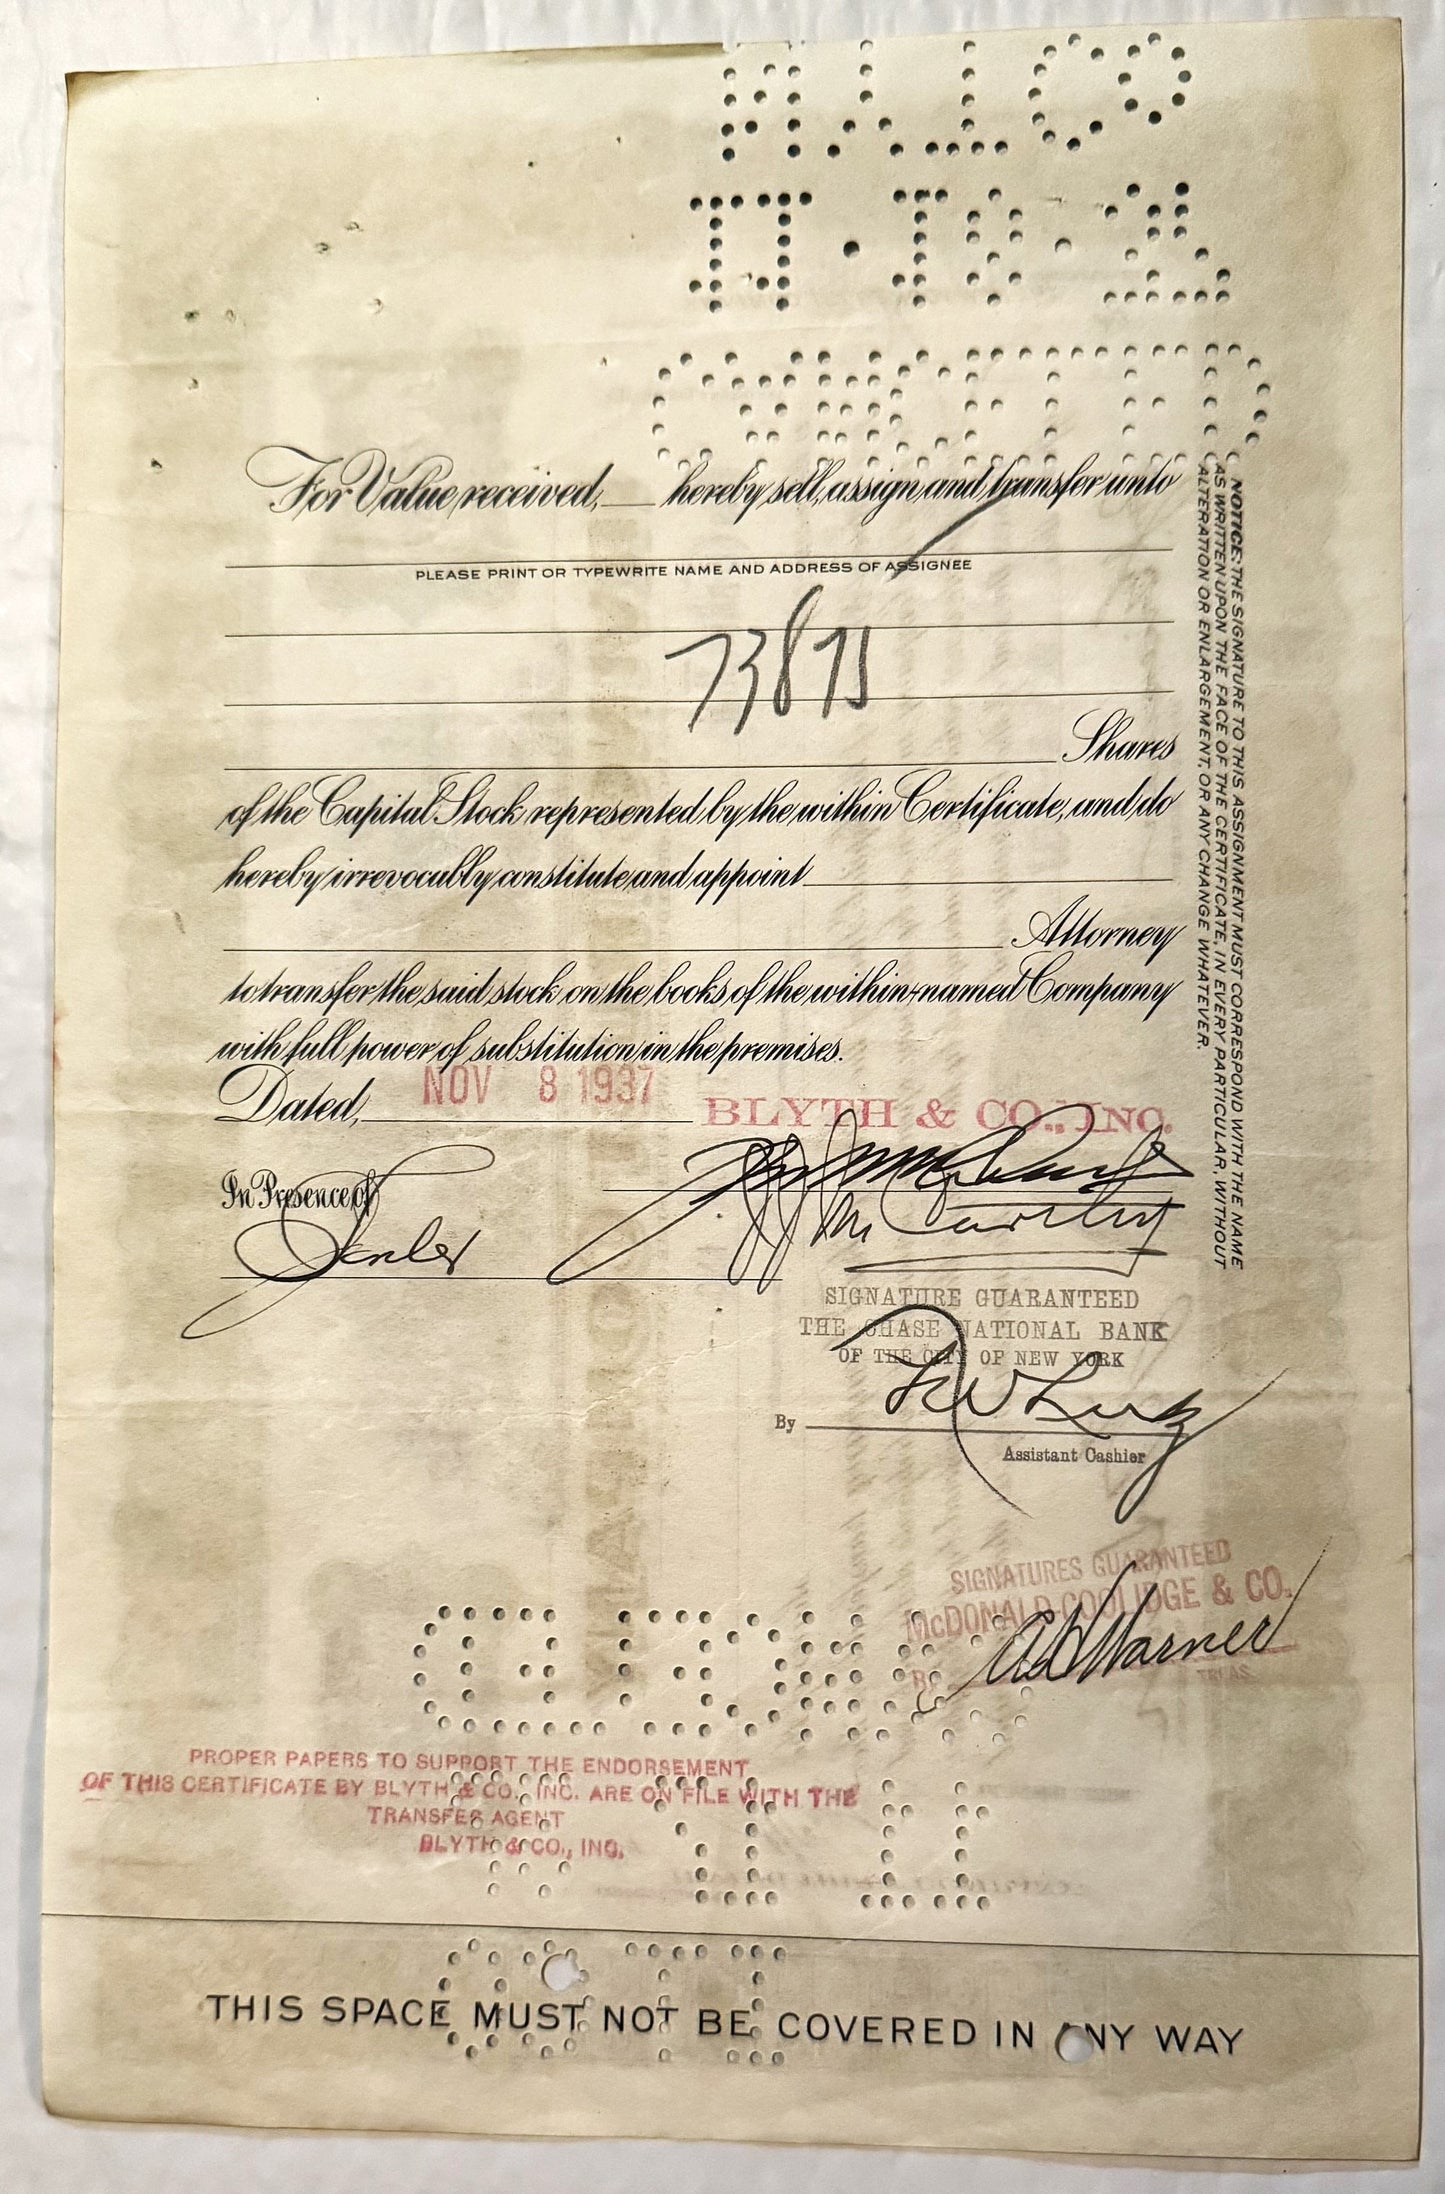 For Value received, hereby sell, assign and transfer unto
PLEASE PRINT OR TYPEWRITE NAME AND ADDRESS OF ASSIGNEE
73875
Shares
of the Capital Stock represented by the within Certificate, and do
hereby irrevocably constitute and appoint
Attorney
to transfer the said stock on the books of the within-named Company
with full power of substitution in the premises.
Dated, NOV 8 1937
BLYTH & CO., INC.
In Presence of
McCarthy
SIGNATURE GUARANTEED
THE CHASE NATIONAL BANK
OF THE CITY OF NEW YORK
By
Assistant Cashier
SIGNATURES GUARANTEED
McDONALD-COOLIDGE & CO.
BY Warner
TREAS.
PROPER PAPERS TO SUPPORT THE ENDORSEMENT
OF THIS CERTIFICATE BY BLYTH & CO., INC. ARE ON FILE WITH THE
TRANSFER AGENT
BLYTH & CO., INC.
THIS SPACE MUST NOT BE COVERED IN ANY WAY
NOTICE: THE SIGNATURE TO THIS ASSIGNMENT MUST CORRESPOND WITH THE NAME
AS WRITTEN UPON THE FACE OF THE CERTIFICATE, IN EVERY PARTICULAR, WITHOUT
ALTERATION OR ENLARGEMENT, OR ANY CHANGE WHATEVER.